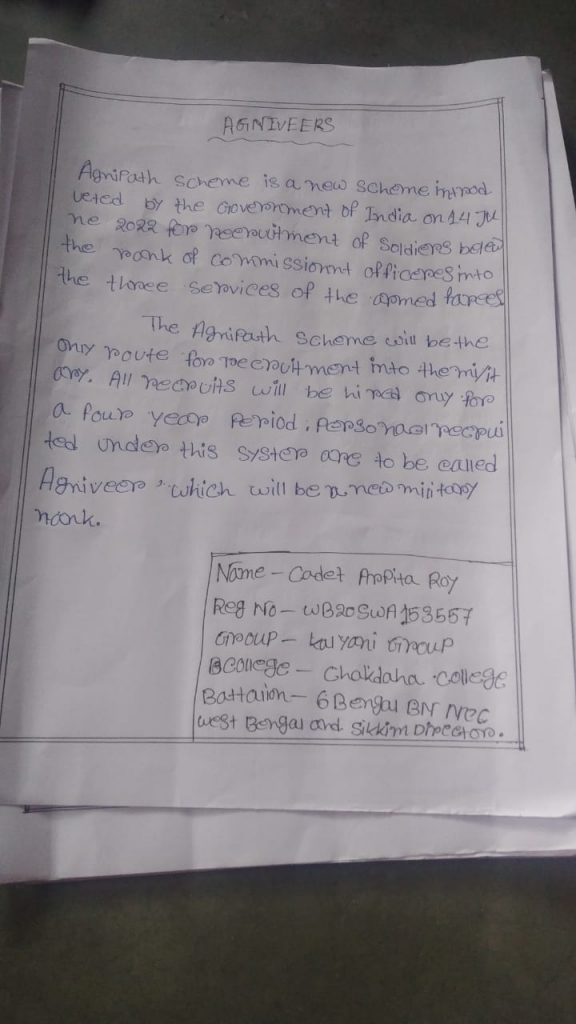 AGNIVEERS
Agnipath scheme is a new scheme introd
uced by the Government of India on 14 Ju
ne 2022 for recruitment of Soldiers below
the rank of commissionnt officeres into
the three services of the armed forces
The Agnipath scheme will be the
only route for recruitment into the milit
ary. All recruits will be hired only for
a four year period. Personael recrui
ted under this system are to be called
Agniveer, which will be a new military
rank.
Name - Cadet Arpita Roy
Reg No - WB20SWA153557
Group - Kalyani Group
BCollege - Chakdaha College
Battalion - 6 Bengal BN NCC
West Bengal and Sikkim Director.